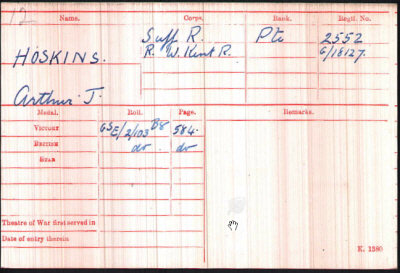 12
Name. Corps. Rank. Regtl. No.
HOSKINS. Suff R. Pte 2552
R. W. Kent R. G/18127.
Arthur J.
Medal. Roll. Page. Remarks.
VICTORY GSE/2/103 B8 584.
BRITISH do. do
STAR
Theatre of War first served in
Date of entry therein
K. 1380